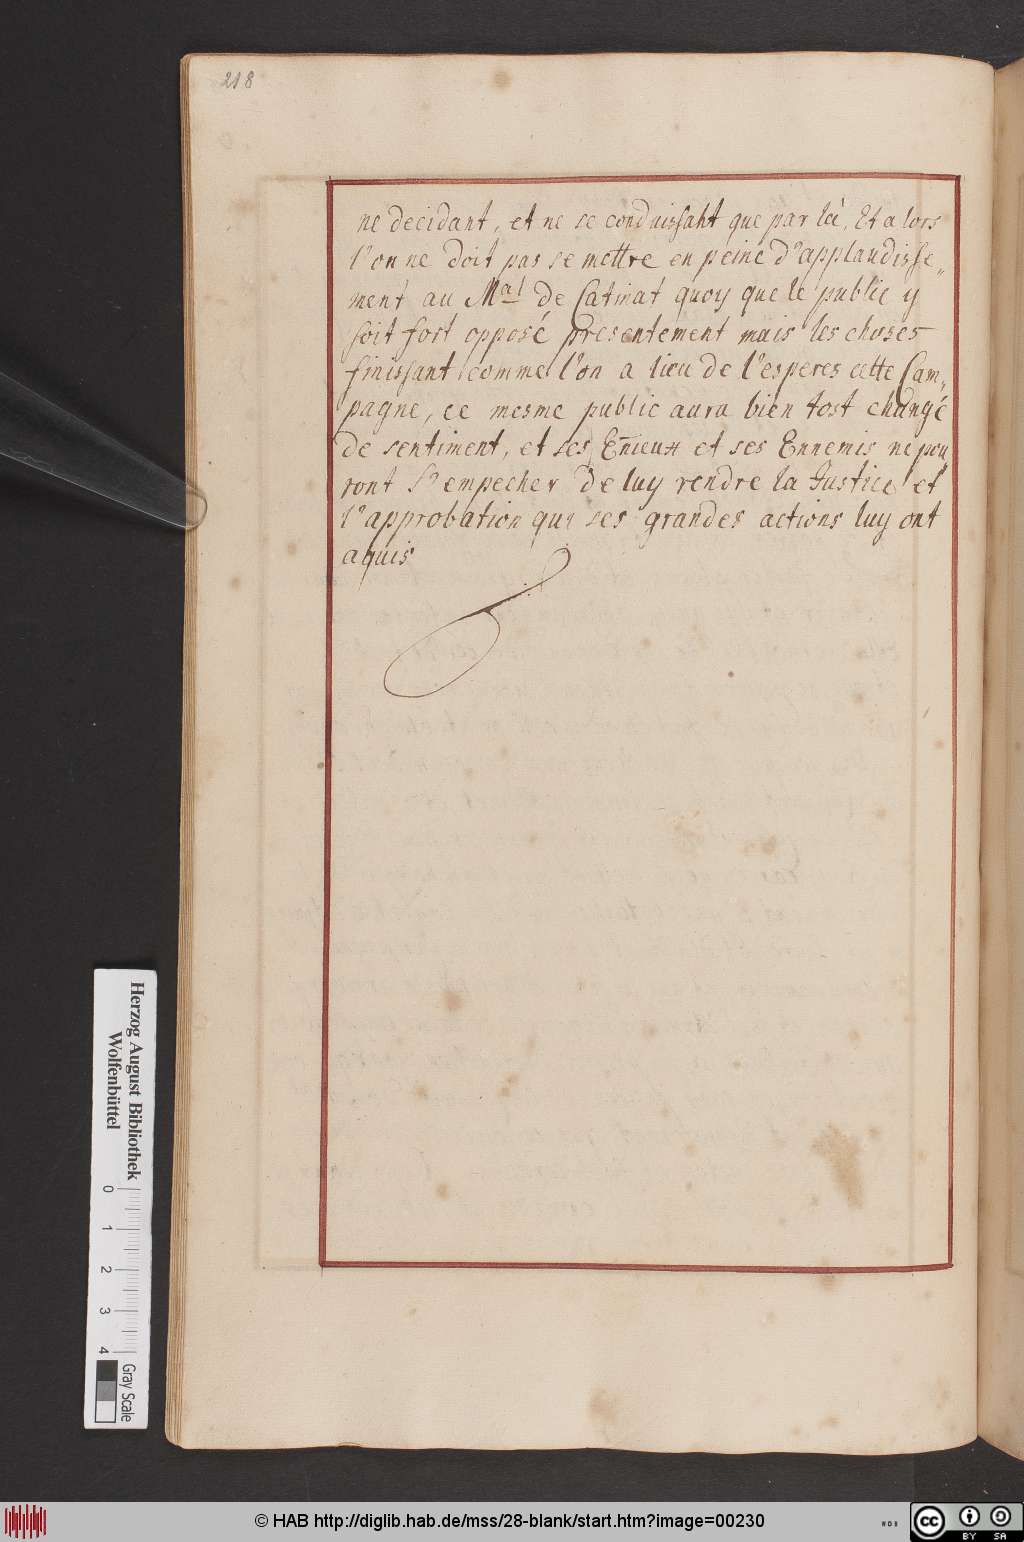 218
ne decidant, et ne se conduissant que par là, Et alors
l'on ne doit pas se mettre en peine d'applaudisse„
ment au Mal de Catinat quoy que le public y
soit fort opposé presentement mais les choses
finissant comme l'on a lieu de l'esperes cette Cam„
pagne, ce mesme public aura bien tost changé
de sentiment, et ses Enieux et ses Ennemis ne pou„
ront s'empecher de luy rendre la Justice et
l'approbation que ses grandes actions luy ont
aquis
Herzog August Bibliothek
Wolfenbüttel
0 1 2 3 4
Gray Scale
© HAB http://diglib.hab.de/mss/28-blank/start.htm?image=00230
WDB
CC BY SA